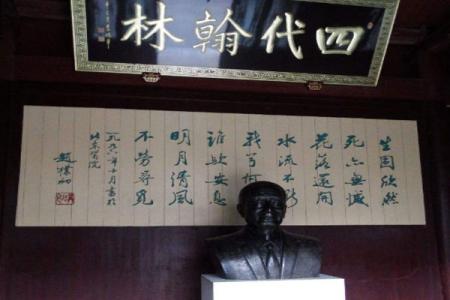 四代翰林
生固欣然
死亦無憾
花落還開
水流不斷
我兮何
誰歟安息
明月清風
不勞尋覓
一九九六年十月書於
北京醫院
趙樸初